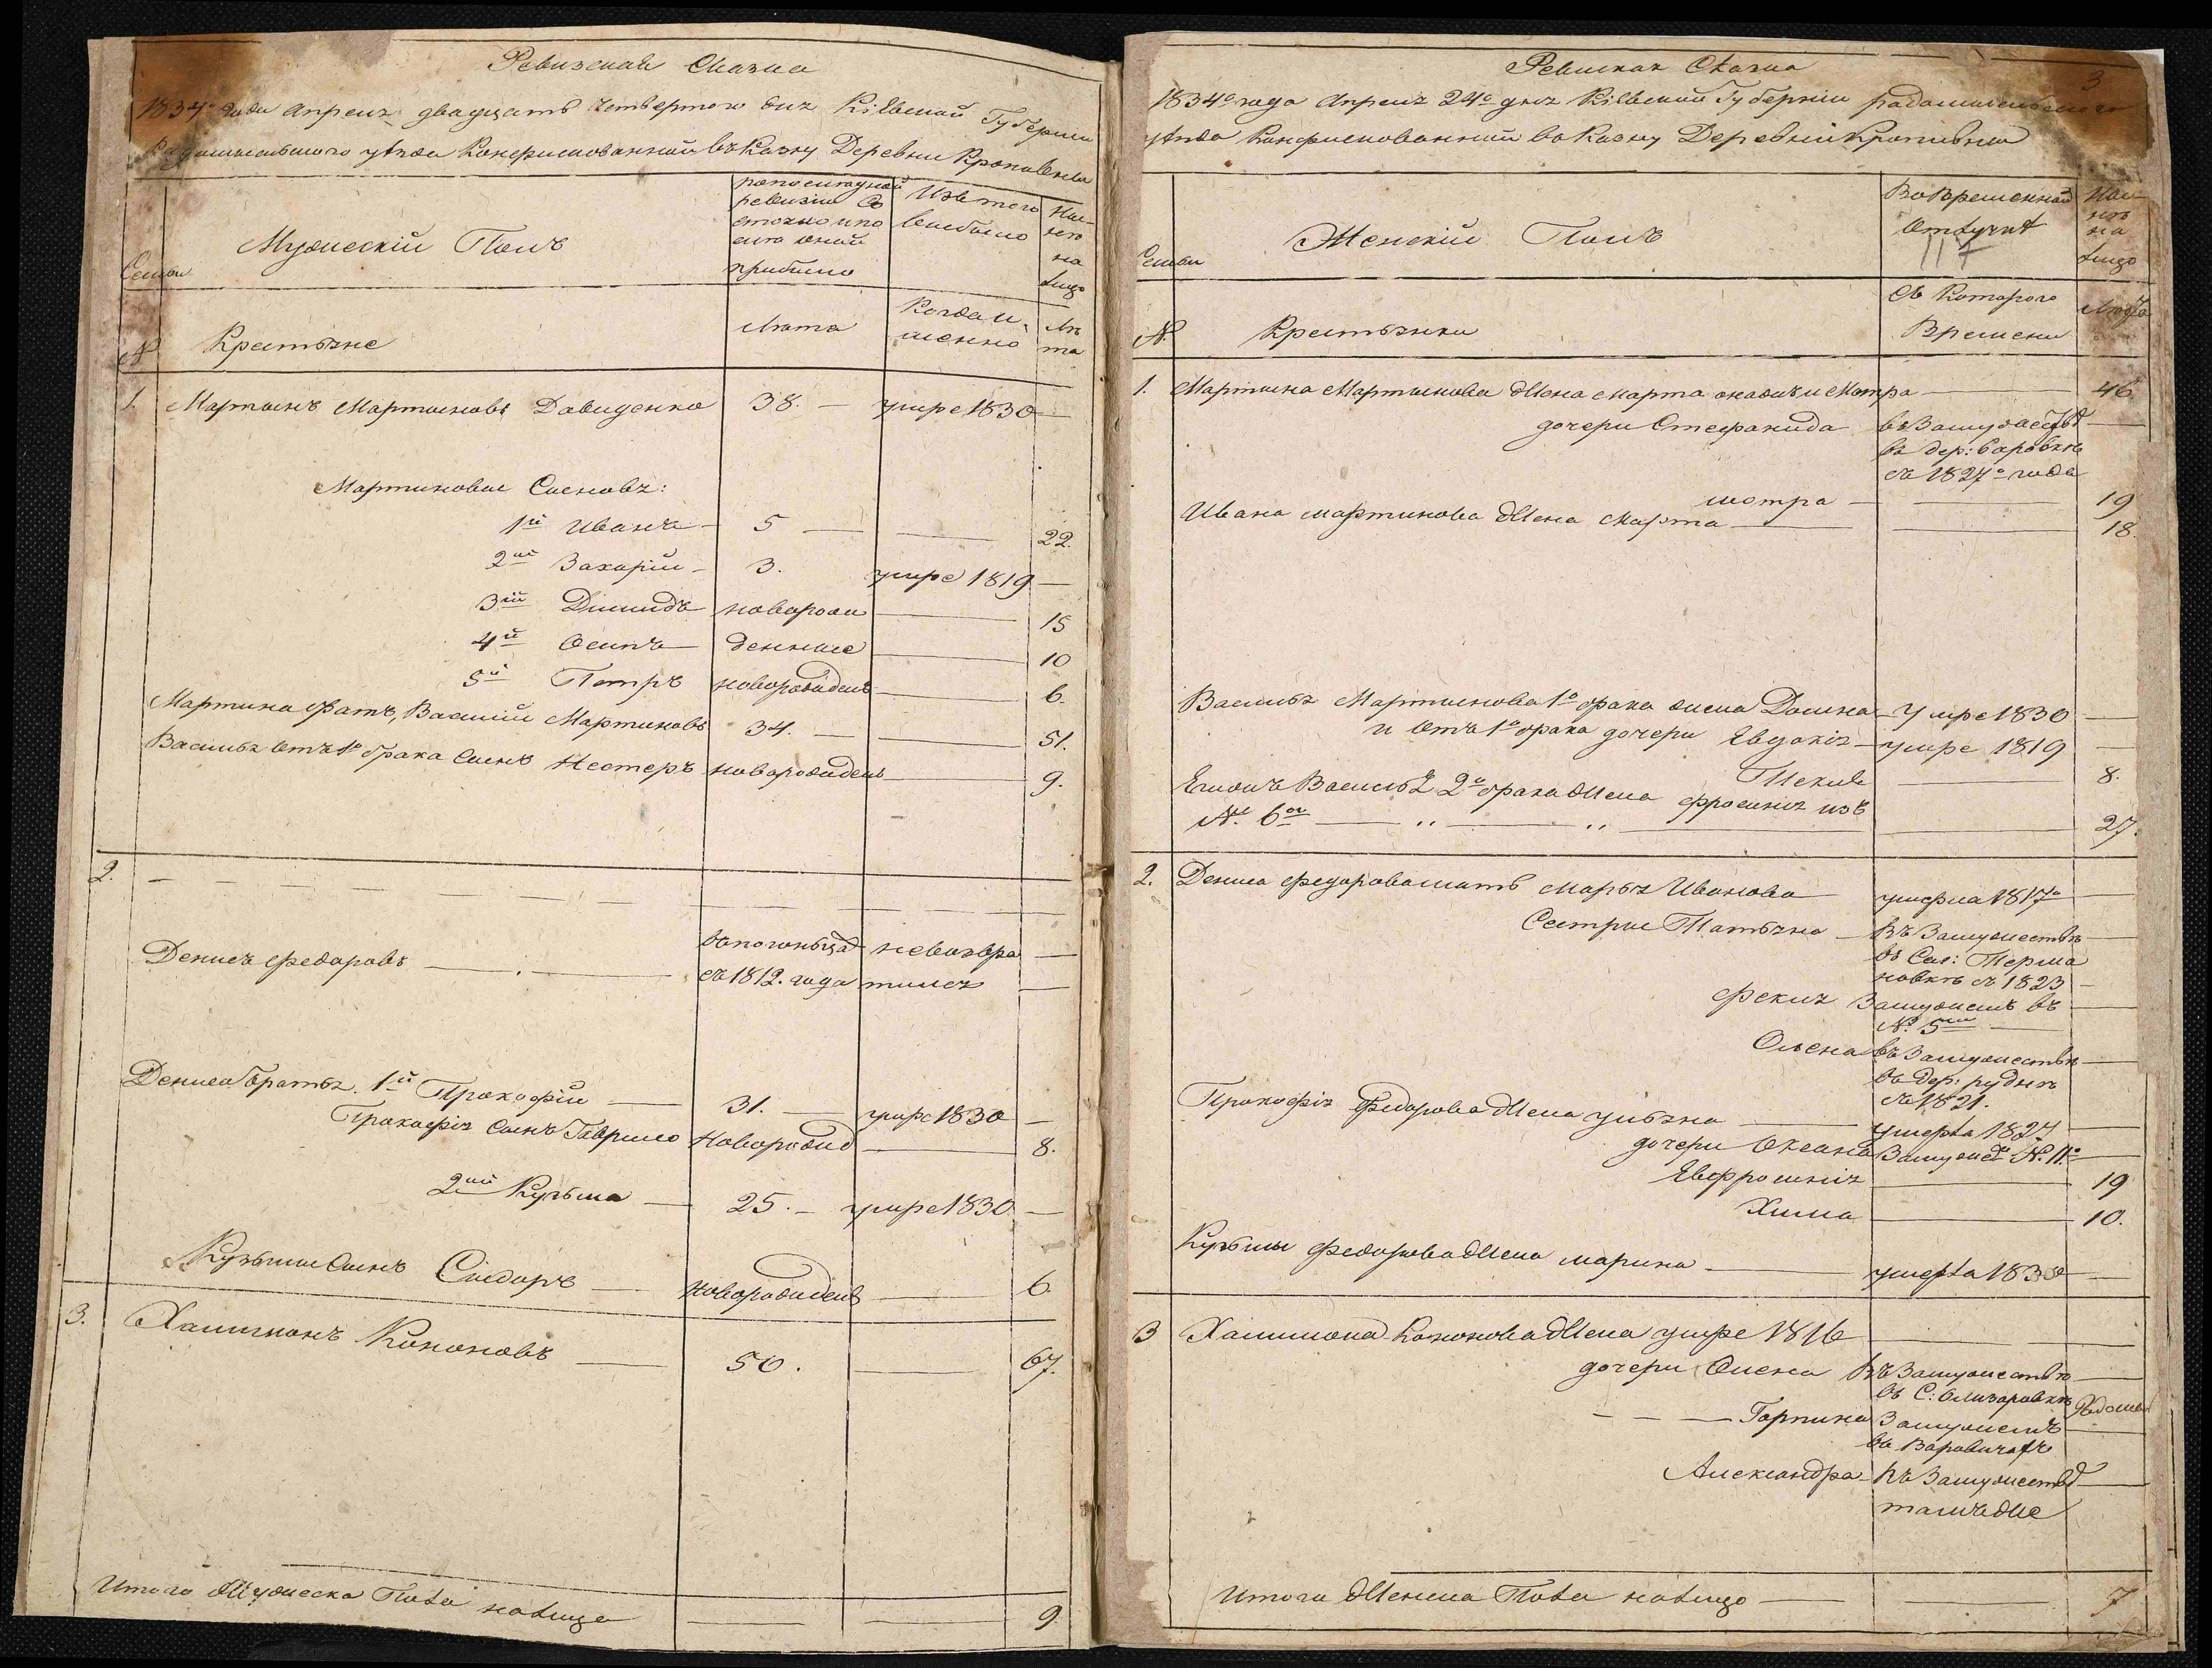 Ревизская Сказка
1834го года Апреля двадцать четвертого дня Кіевской Губерніи
Радомысльского уѣзда Конфискованной въ Казну Деревни Кропивни
Семьи
Мужескій Полъ
по последней
ревизіи со
стояло и по
сле оной
прибыло
Изъ того
выбыло
Ныне
на
лицо
№
Крестьяне
Лѣта
Когда и
менно
Лѣ
та
1. Мартынъ Мартыновъ Давиденко 38. — умре 1830 —
Мартиновые Сыновя:
1й Иванъ — 5 — — 22.
2ий Захарій — 3. умре 1819 —
3ій Діамидъ новорож — 15
4й Осипъ — денные — 10
5й Петръ новорожденъ — 6.
Мартина братъ, Василій Мартиновъ 34. — — 51.
Василя отъ 1го брака Сынъ Нестеръ новорожденъ — 9.
2.
Денисъ Федоровъ — съ 1812. года
невозвра
тился
Дениса братья. 1й Прокофій — 31. — умре 1830 —
Прокофія Сынъ Гаврило Новорожд — 8.
2ий Кузьма — 25. — умре 1830. —
Кузьмы Сынъ Сидоръ — Новорожденъ — 6.
3. Харитонъ Кононовъ — 50. — 67.
Итого Мужеска Пола налицо — — 9.
Ревиская Сказка
3
1834го года Апреля 24го дня Кіевской Губерніи радомысльского
уѣзда Конфискованной въ Казну Деревни Кропивни
Семьи
Женскій Полъ
Во Временной
Отлучкѣ
Ныне
на
лицо
№.
Крестьянки
Съ Котораго
Времени
Лѣта
1. Мартина Мартинова Жена Марта онажъ и Мотра — 46
дочери Стефанида въ Замужествѣ —
въ дер: Боровкѣ
съ 1827го года
мотра — — 19
Ивана мартинова Жена Марта — — 18.
Василя Мартинова 1го брака жена Домна — Умре 1830 —
и отъ 1го брака дочери Евдокія — умре 1819 —
Текля — 8.
Егожъ Василя 2го брака Жена Фросинія изъ
№ 6го — „ — „ — 27.
2. Дениса Федорова мать Марья Иванова умерла 1817го —
Сестры Татьяна — Въ Замужествѣ —
въ Сел: Терма
новкѣ съ 1823 —
Фекла Замужемъ въ —
№ 5мъ —
Олена въ Замужествѣ —
въ дер: рудне
съ 1821.
Прокофія Федорова Жена ульяна — умерла 1827 —
дочери Оксана Замуже № 11го —
Евфросинія — 19
Хима — 10.
Кузьмы Федорова Жена марина — умерла 1830 —
3 Харитона Кононова Жена умре 1816 —
дочери Олена Въ Замужествѣ —
въ С: Олизаровкѣ
— — — Горпина Замужемъ —
въ Варовичахъ
Александра — Въ Замужествѣ —
тамъ Же
Итого Женска Пола налицо — — 7